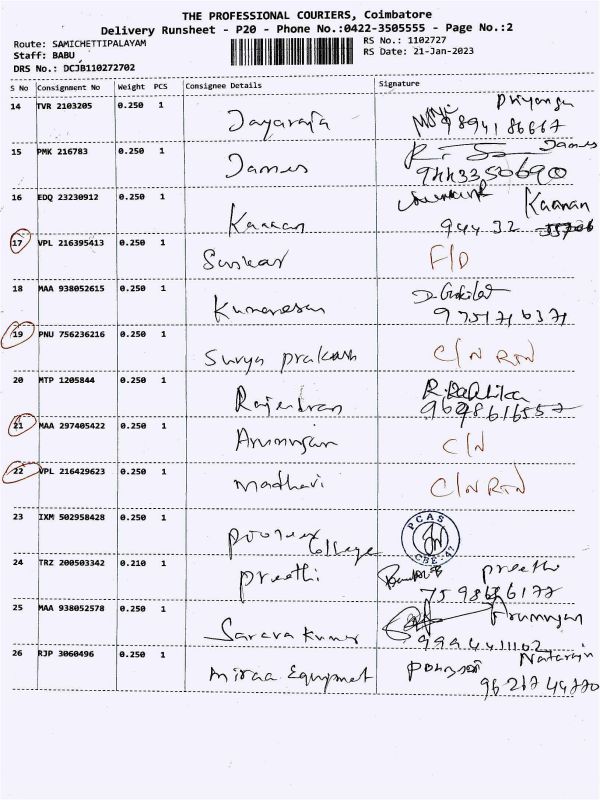 THE PROFESSIONAL COURIERS, Coimbatore
Delivery Runsheet - P20 - Phone No.:0422-3505555 - Page No.:2
Route: SAMICHETTIPALAYAM
RS No.: 1102727
Staff: BABU
RS Date: 21-Jan-2023
DRS No.: DCJB110272702
S No Consignment No Weight PCS Consignee Details Signature
14 TVR 2103205 0.250 1 Jayaraja Priyanga
9894186667
15 PMK 216783 0.250 1 James James
9443350690
16 EDQ 23230912 0.250 1 Kannan Kaanan
94432
17 VPL 216395413 0.250 1 F/D
18 MAA 938052615 0.250 1 Kumaresan
9751716371
19 PNU 756236216 0.250 1 Surya prakash C/N RTN
20 MTP 1205844 0.250 1 Rajendran
9698616557
21 MAA 297405422 0.250 1 Arumugan C/N
22 VPL 216429623 0.250 1 Madhavi C/N RTN
23 IXM 502958428 0.250 1 College PCAS CBE-47
24 TRZ 200503342 0.210 1 preethi preethi
25 MAA 938052578 0.250 1 Sarava Kumar Arumugan
9994411102
26 RJP 3060496 0.250 1 Miraa Equipmet Natarajn